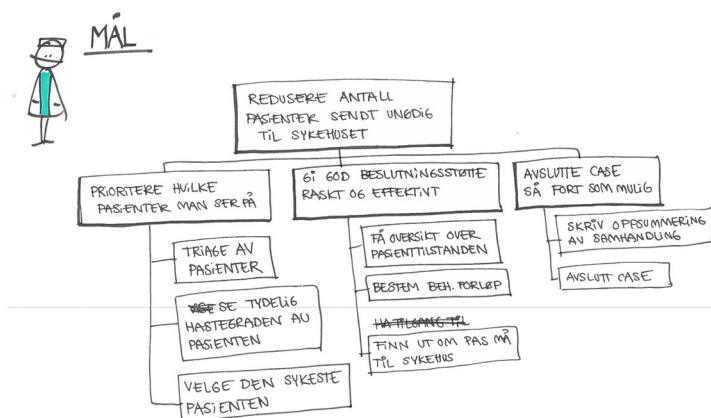 MÅL
REDUSERE ANTALL
PASIENTER SENDT UNØDIG
TIL SYKEHUSET
PRIORITERE HVILKE
PASIENTER MAN SER PÅ
TRIAGE AV
PASIENTER
SE TYDELIG
HASTEGRADEN AV
PASIENTEN
VELGE DEN SYKESTE
PASIENTEN
GI GOD BESLUTNINGSSTØTTE
RASKT OG EFFEKTIVT
FÅ OVERSIKT OVER
PASIENTTILSTANDEN
BESTEM BEH. FORLØP
HA TILGANG TIL
FINN UT OM PAS MÅ
TIL SYKEHUS
AVSLUTTE CASE
SÅ FORT SOM MULIG
SKRIV OPPSUMMERING
AV SAMHANDLING
AVSLUTT CASE